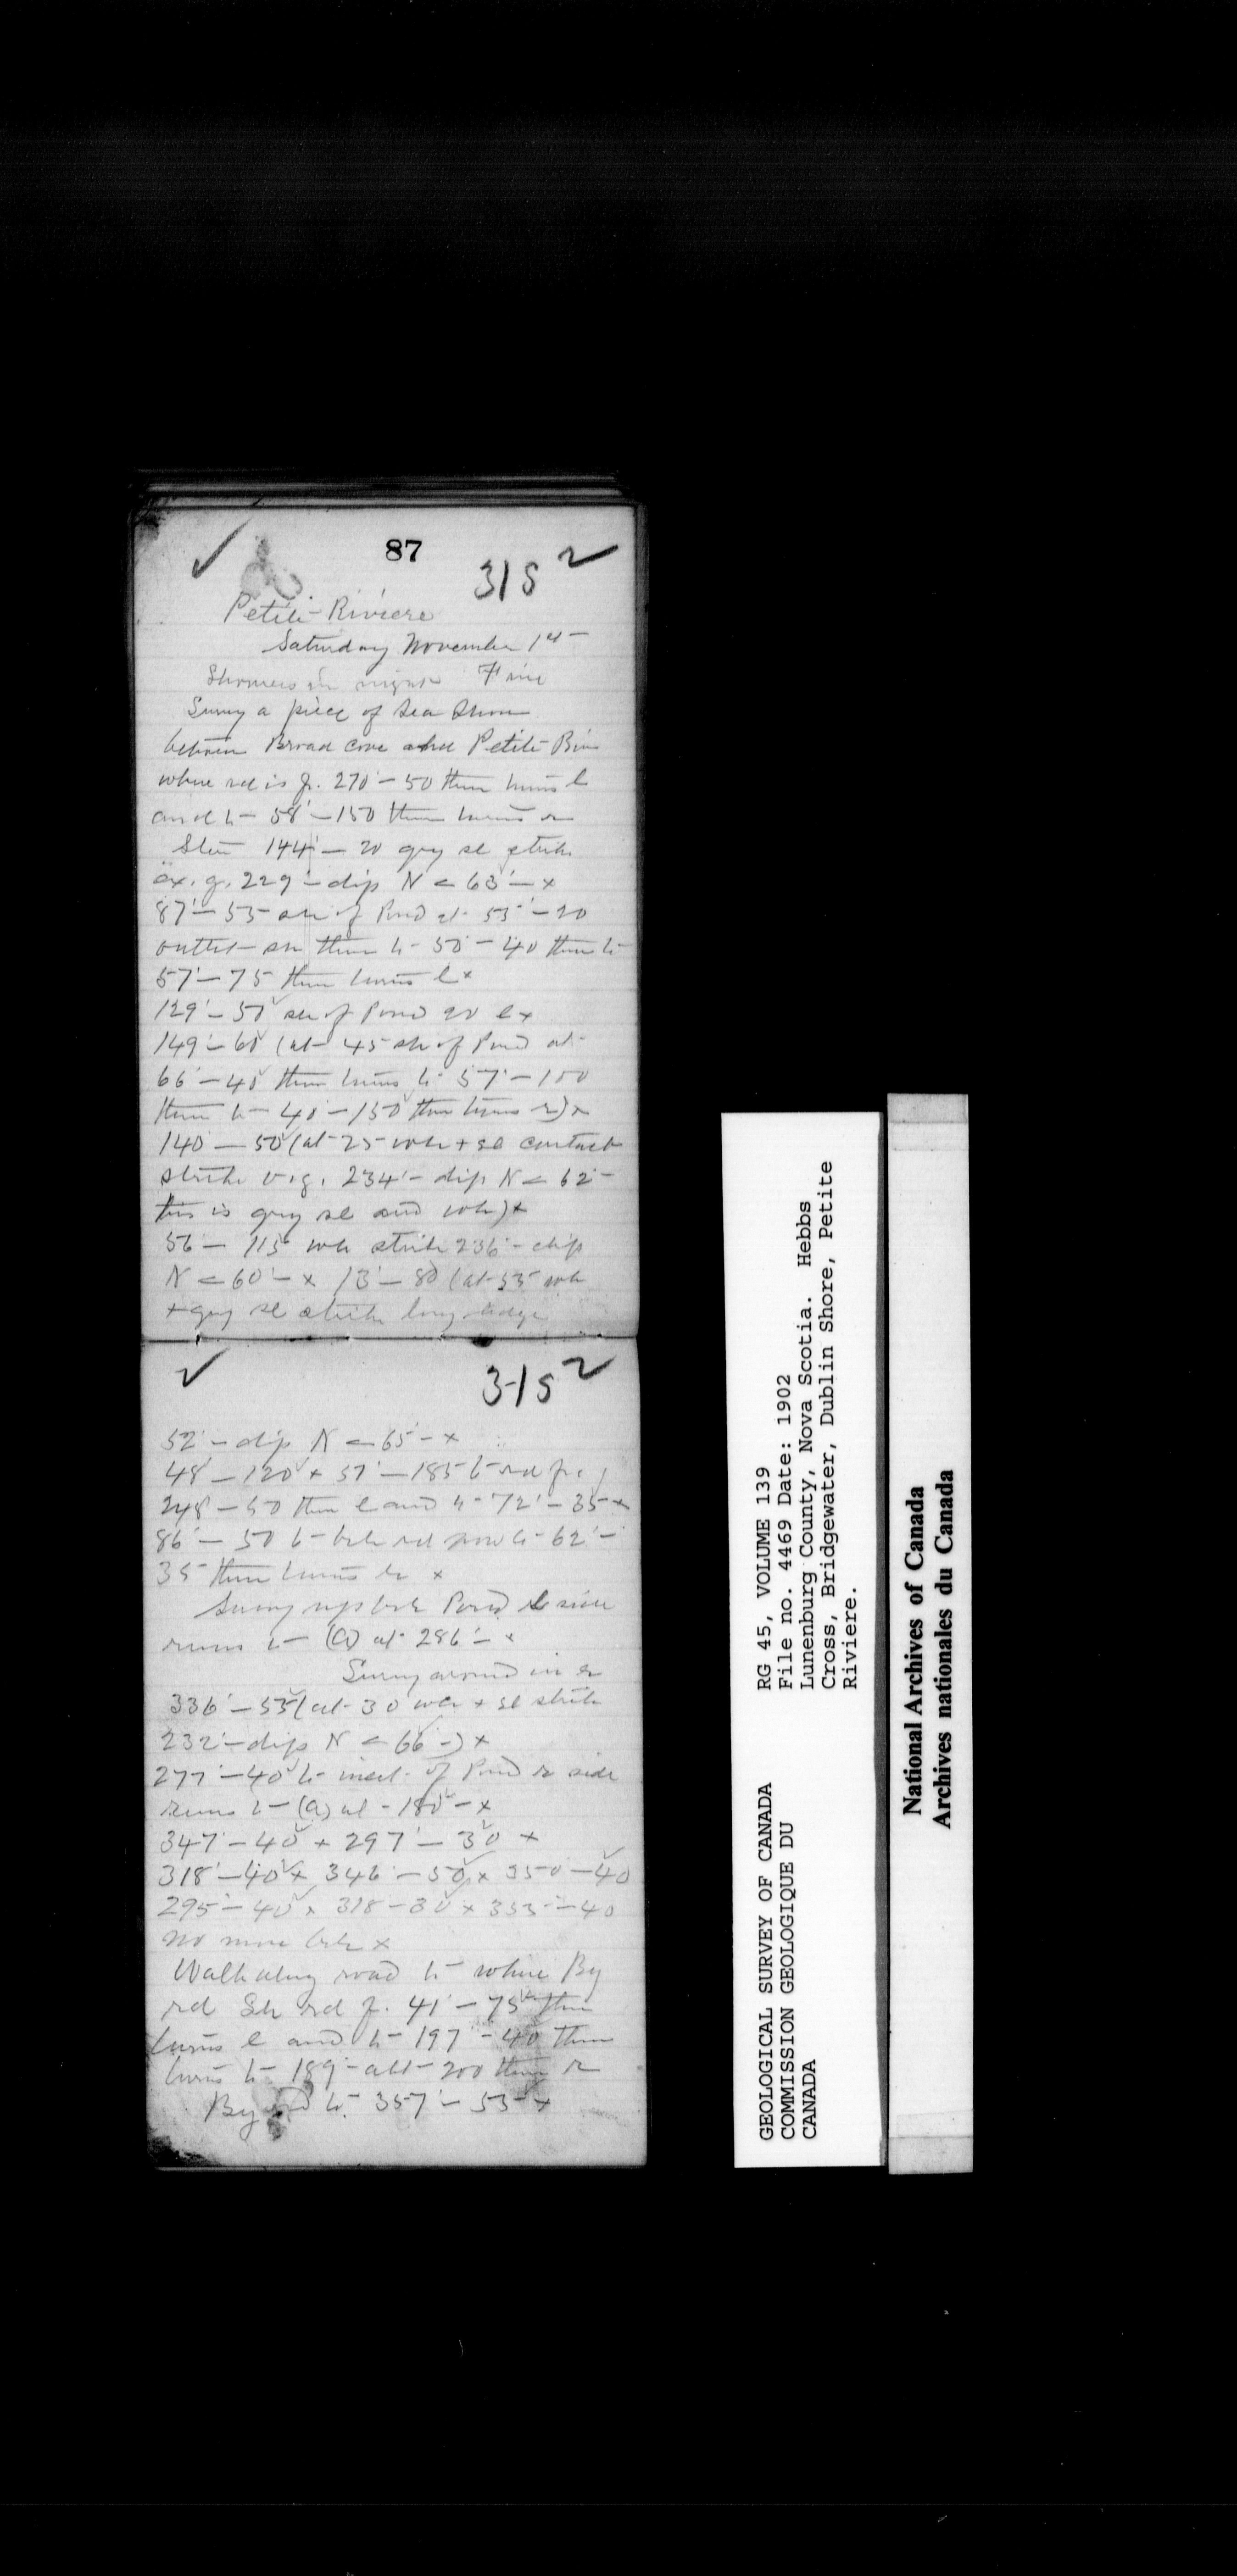 87
315
Petite Riviere
Saturday November 1st
Showers in night Fine
Survey a piece of Sea Shore
between Broad Cove and Petite Riv
where rd is fr. 270° - 50 then turns l
and to 58° - 150 then turns r
144° - 20 grey sl strike
229° - dip N < 63° - x
87° - 55 of Pond at 55° - 20
outlet then to 50 - 40 then to
57° - 75 then turns l x
129° - 50 of Pond 20 l x
149° - 60 (at 45 of Pond at
66° - 40 then turns to 57° - 100
then to 40 - 150 then turns r) x
140 - 50 (at 25 wh + sl contact
strike v.g. 234° - dip N < 62° -
this is grey sl and wh) x
56 - 115 wh strike 236° - dip
N < 60° - x 13° - 80 (at 55 wh
+ grey sl strike long ledge
315
52° - dip N < 65° - x
48° - 120 x 57° - 185 to rd fr.
248 - 50 then l and to 72° - 35 x
86° - 50 to rd to 62° -
35 then turns x
Survey up Pond l side
runs to (a) at 286° - x
Survey around in
336° - 55 (at 30 wh + sl strike
232° - dip N < 66° -) x
277° - 40 to inlet of Pond r side
runs to (a) at 180° - x
347° - 40 x 297° - 30 x
318° - 40 x 346° - 50 x 350 - 40
295° - 40 x 318 - 30 x 353° - 40
no more x
Walk along road to where By
rd rd fr. 41° - 75 then
turns l and to 197° - 40 then
turns to 189° - abt 200 then r
By rd to 357° - 55 x
GEOLOGICAL SURVEY OF CANADA
COMMISSION GEOLOGIQUE DU
CANADA
RG 45, VOLUME 139
File no. 4469 Date: 1902
Lunenburg County, Nova Scotia. Hebbs
Cross, Bridgewater, Dublin Shore, Petite
Riviere.
National Archives of Canada
Archives nationales du Canada